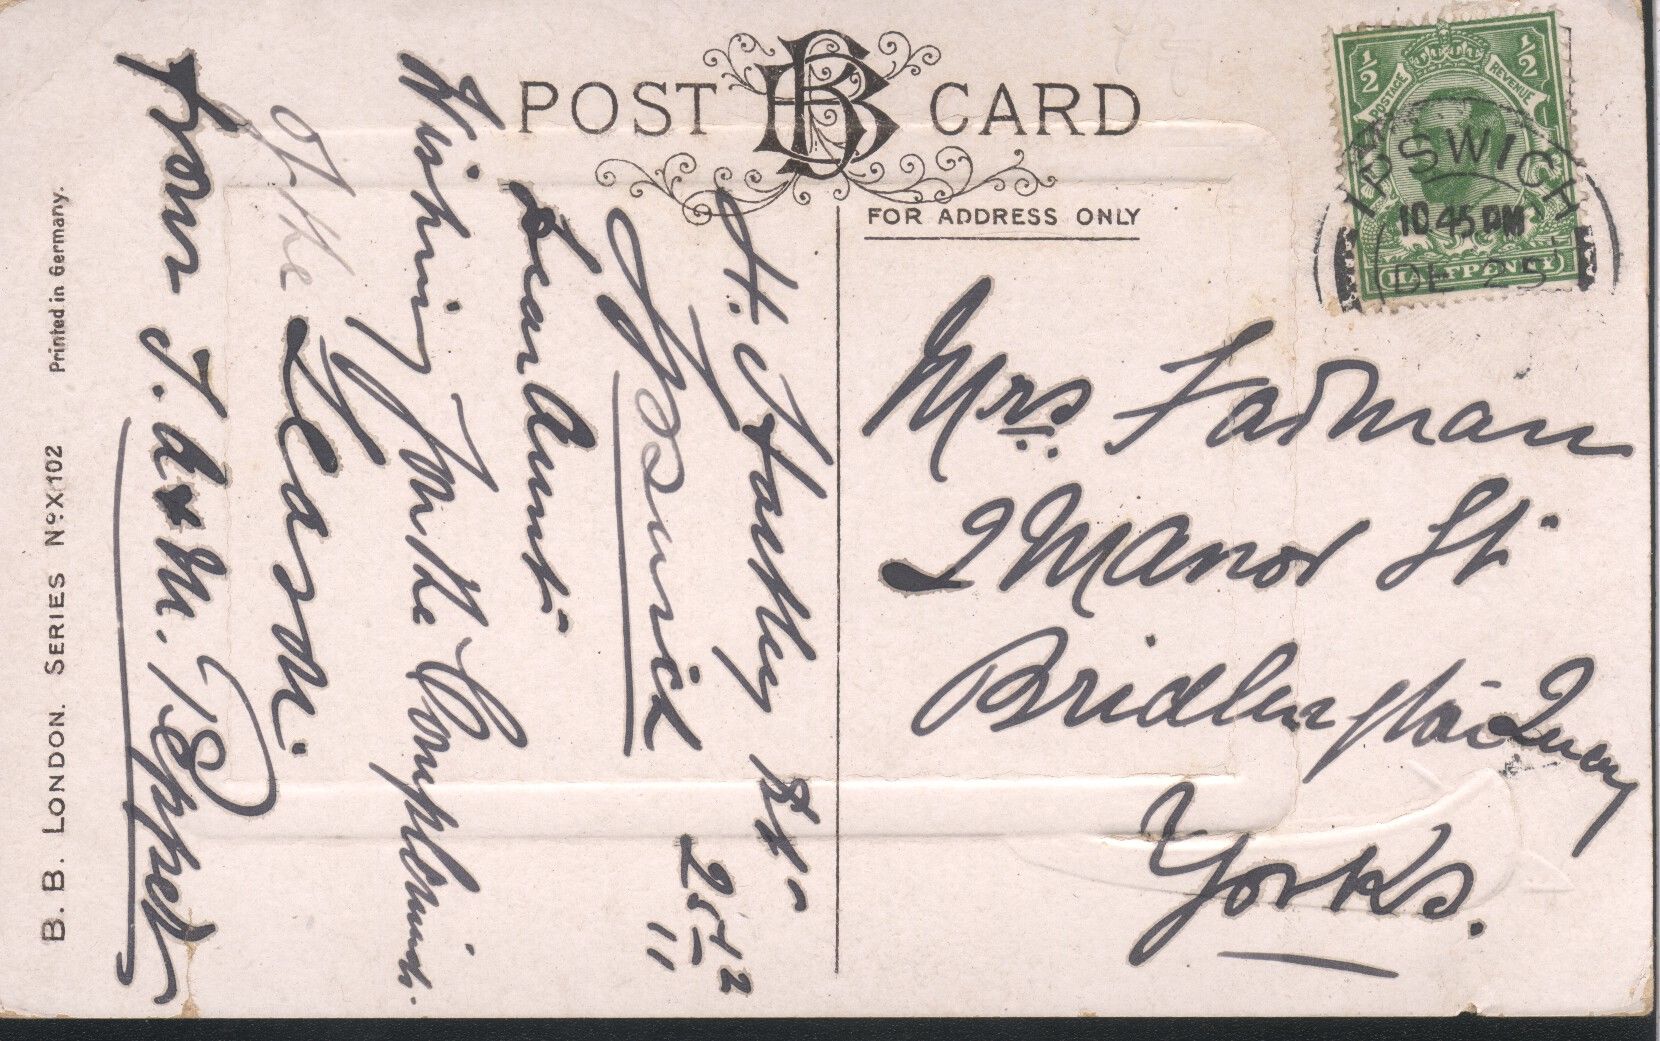 POST CARD
FOR ADDRESS ONLY
½ POSTAGE REVENUE ½
HALFPENNY
IPSWICH
10 45 PM
DE 25
Mrs.
2 Manor St
Bridlington Quay
Yorks.
H.
Ipswich
25-12
11
Dear Aunt
Wishing You the Compliments
Of the Season.
From J. & M.
B. B. LONDON. SERIES No X102 Printed in Germany.